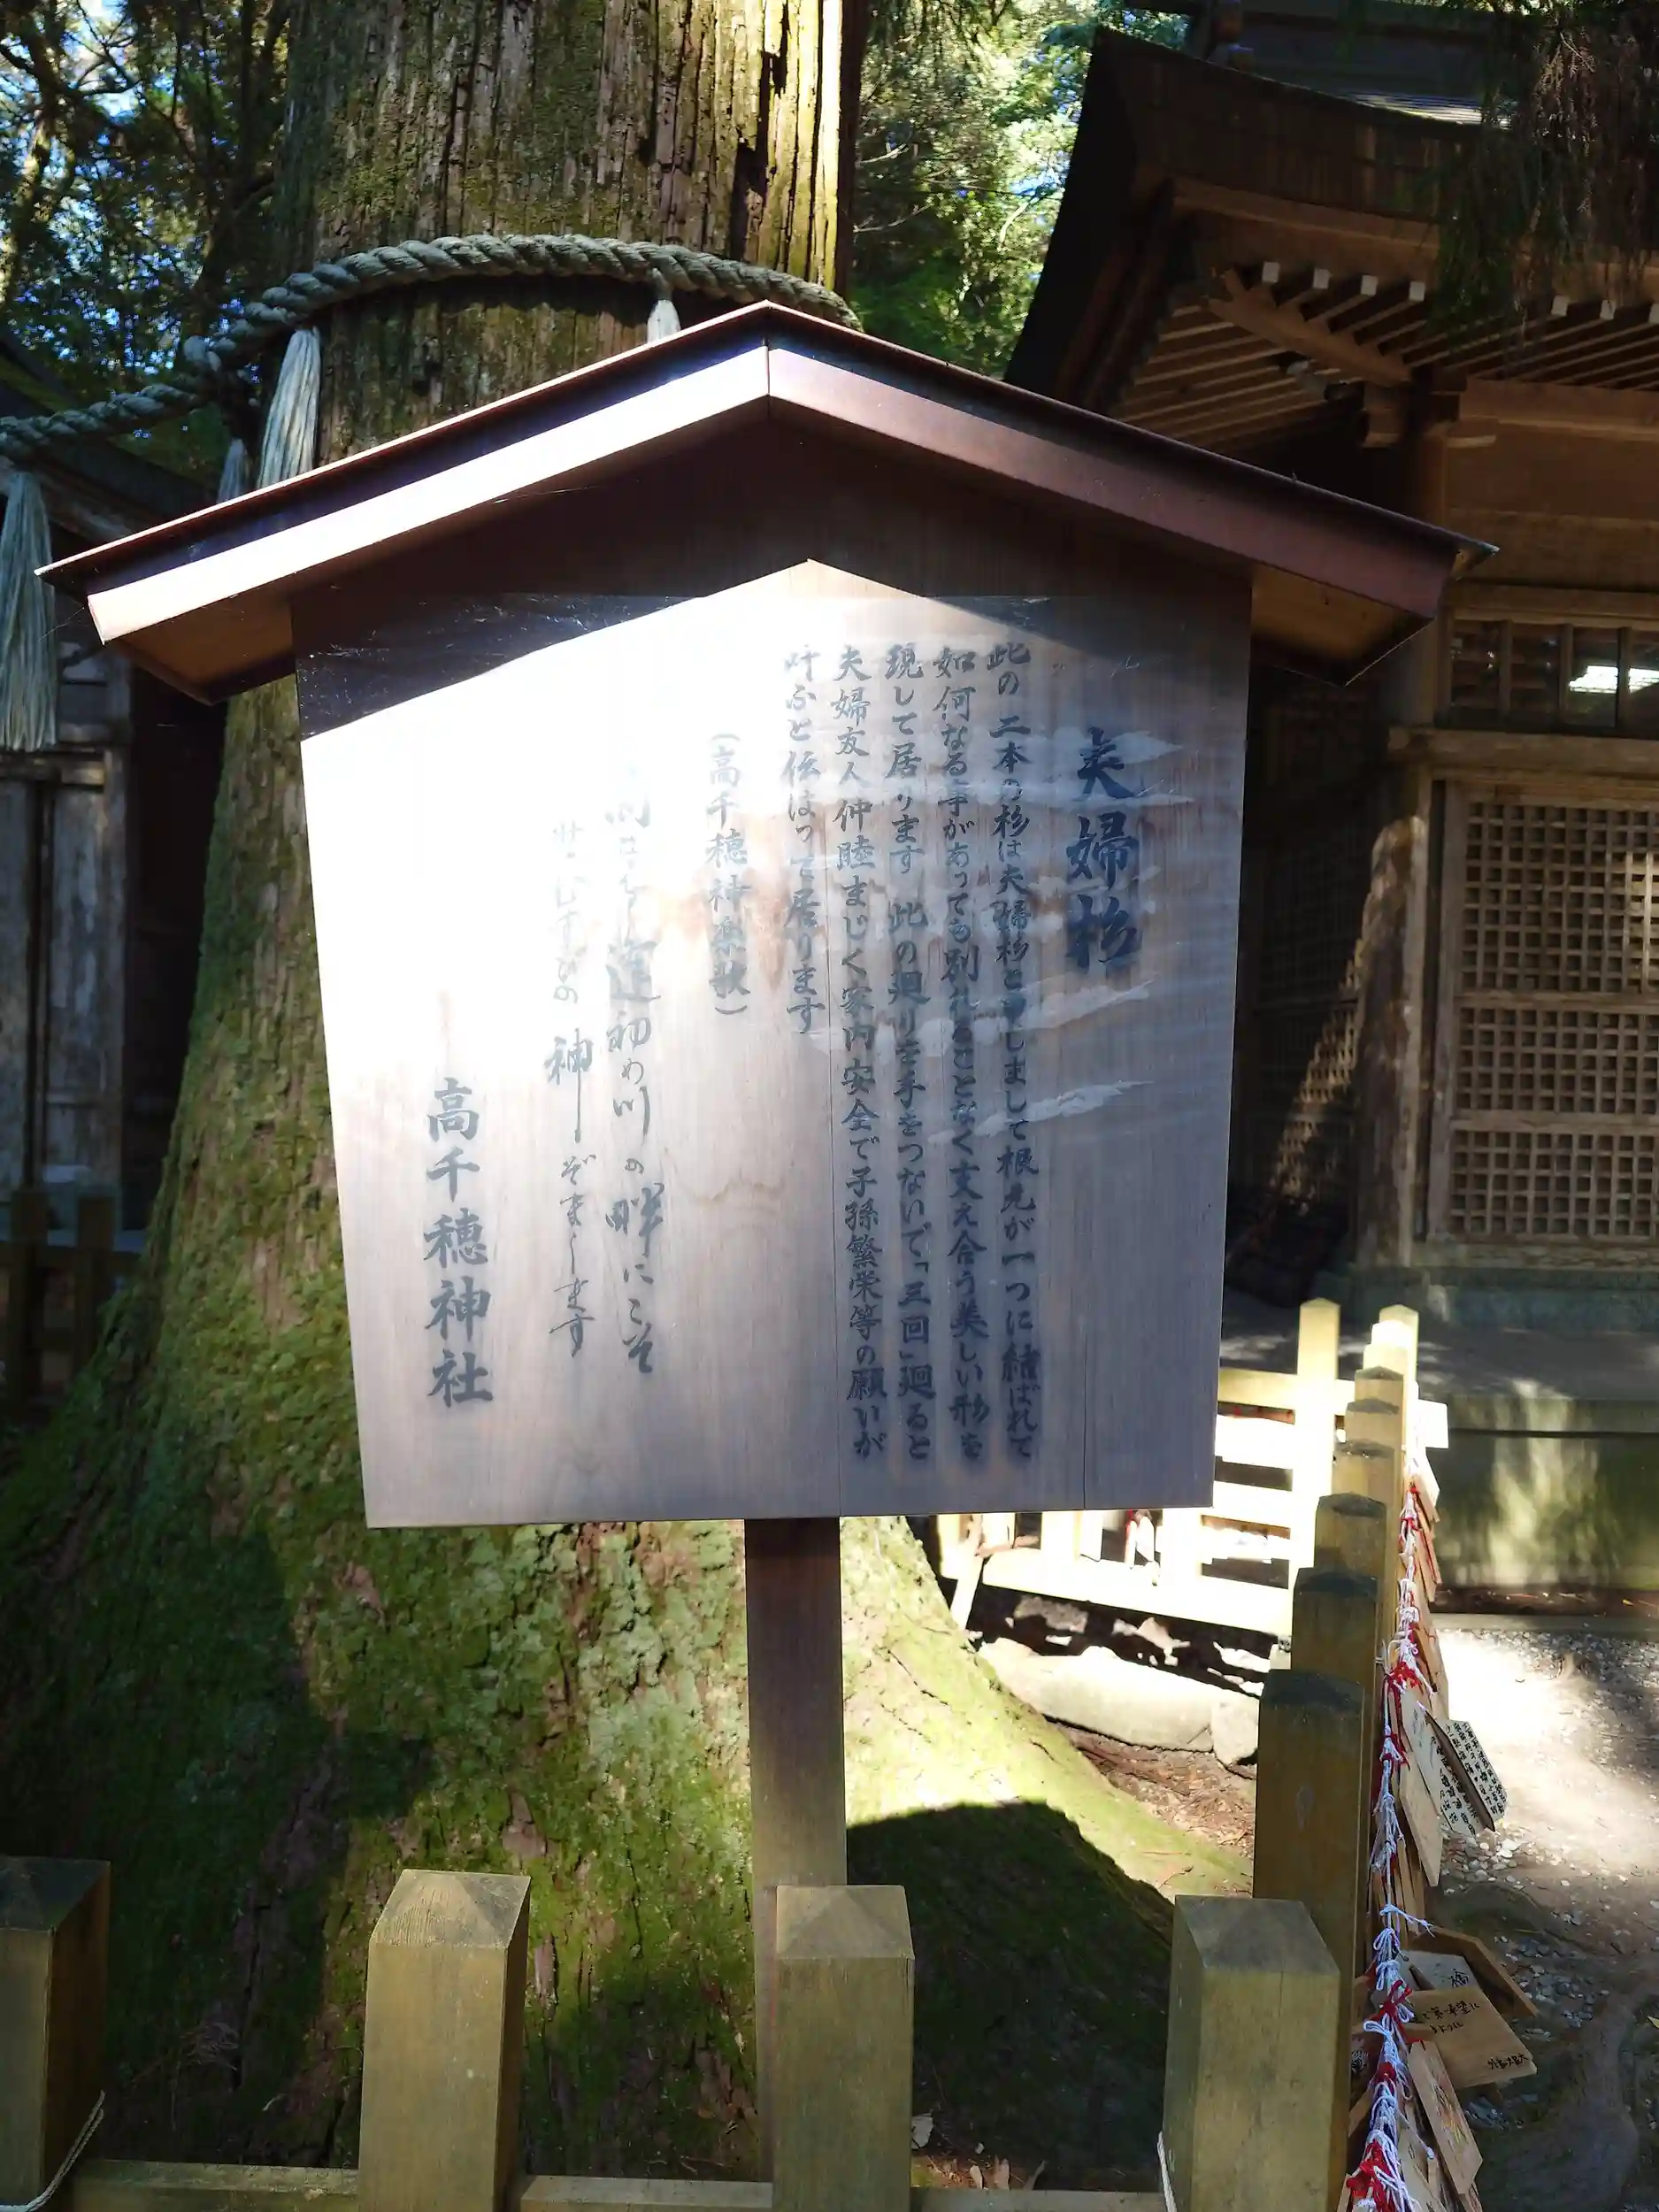 夫婦杉
此の二本の杉は夫婦杉と申しまして根元が一つに結ばれて
如何なる事があっても別れることなく支え合う美しい形を
現して居ります 此の廻りを手をつないで「三回」廻ると
夫婦友人仲睦まじく家内安全で子孫繁栄等の願いが
叶ふと伝はって居ります
(高千穂神楽歌)
逢初め川の畔にこそ
むすびの神ぞまします
高千穂神社